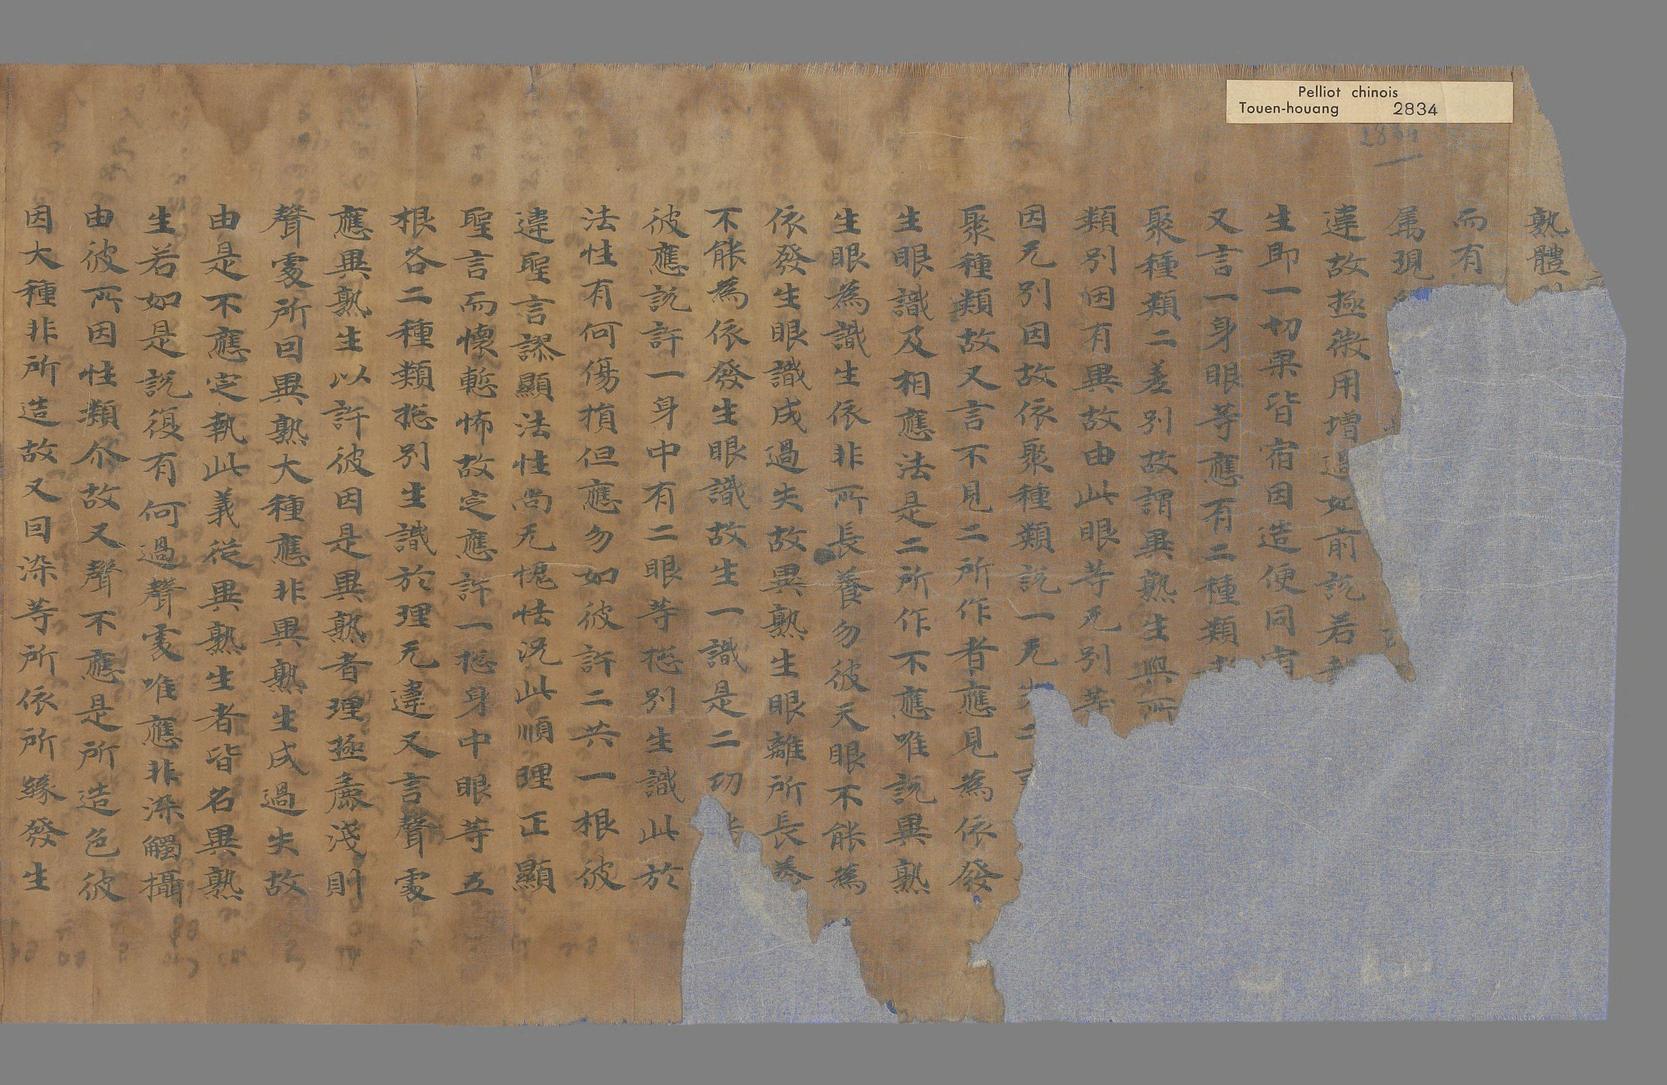 Pelliot chinois
Touen-houang 2834
2834
熟體
而有
属現
違故極微用增過如前説若
生即一切果皆宿因造便同宿
又言一身眼等應有二種類
聚種類二差別故謂異熟生與所
類別因有異故由此眼等无別
因无別因故依聚種類説一无
聚種類故又言不見二所作者應見為依發
生眼識及相應法是二所作不應唯説異熟
生眼為識生依非所長養勿彼天眼不能為
依發生眼識成過失故異熟生眼離所長養
不能為依發生眼識故生一識是二功
彼應説許一身中有二眼等捴別生識此於
法性有何傷損但應勿如彼許二共一根彼
違聖言謬顯法性尚无愧怯況此順理正顯
聖言而懷慙怖故定應許一捴身中眼等五
根各二種類捴別生識於理无違又言聲處
應異熟生以許彼因是異熟者理極麁淺則
聲處所因異熟大種應非異熟生成過失故
由是不應定執此義從異熟生者皆名異熟
生若如是説復有何過聲處唯應非染觸攝
由彼所因性類尒故又聲不應是所造色彼
因大種非所造故又因染等所依所縁發生